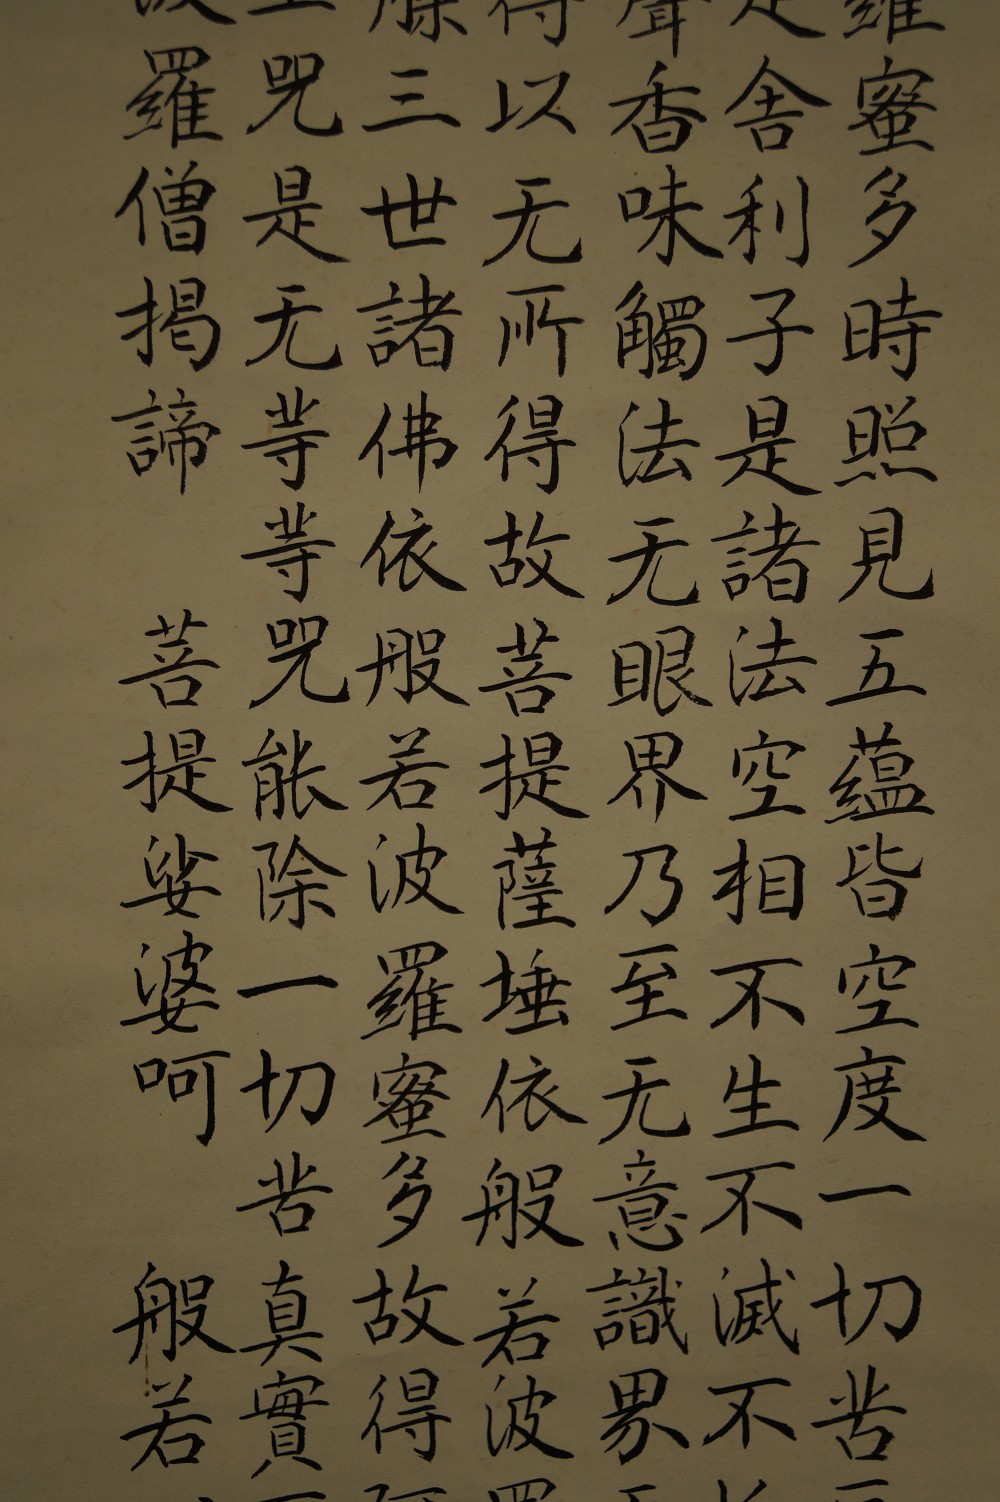 羅蜜多時照見五蘊皆空度一切苦
是舍利子是諸法空相不生不滅不
聲香味觸法无眼界乃至无意識界无
得以无所得故菩提薩埵依般若波羅
三世諸佛依般若波羅蜜多故得阿
咒是无等等咒能除一切苦真實不
波羅僧揭諦 菩提娑婆呵 般若